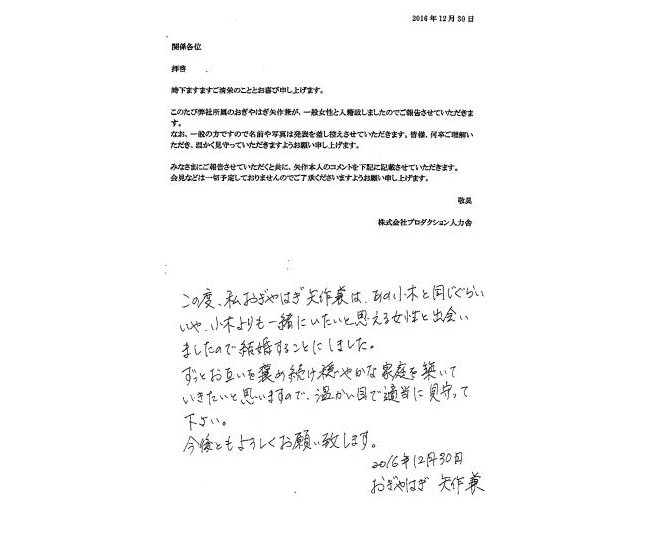 2016年12月30日
関係各位
拝啓
時下ますますご清栄のこととお喜び申し上げます。
このたび弊社所属のおぎやはぎ矢作兼が、一般女性と入籍致しましたのでご報告させていただきま
す。
なお、一般の方ですので名前や写真は発表を差し控えさせていただきます。皆様、何卒ご理解い
ただき、温かく見守っていただきますようお願い申し上げます。
みなさまにご報告させていただくと共に、矢作本人のコメントを下記に記載させていただきます。
会見などは一切予定しておりませんのでご了承くださいますようお願い申し上げます。
敬具
株式会社プロダクション人力舎
この度、私おぎやはぎ矢作兼は、あの小木と同じぐらい
いや、小木よりも一緒にいたいと思える女性と出会い
ましたので結婚することにしました。
ずっとお互いを褒め続け穏やかな家庭を築いて
いきたいと思いますので、温かい目で適当に見守って
下さい。
今後ともよろしくお願い致します。
2016年12月30日
おぎやはぎ 矢作兼